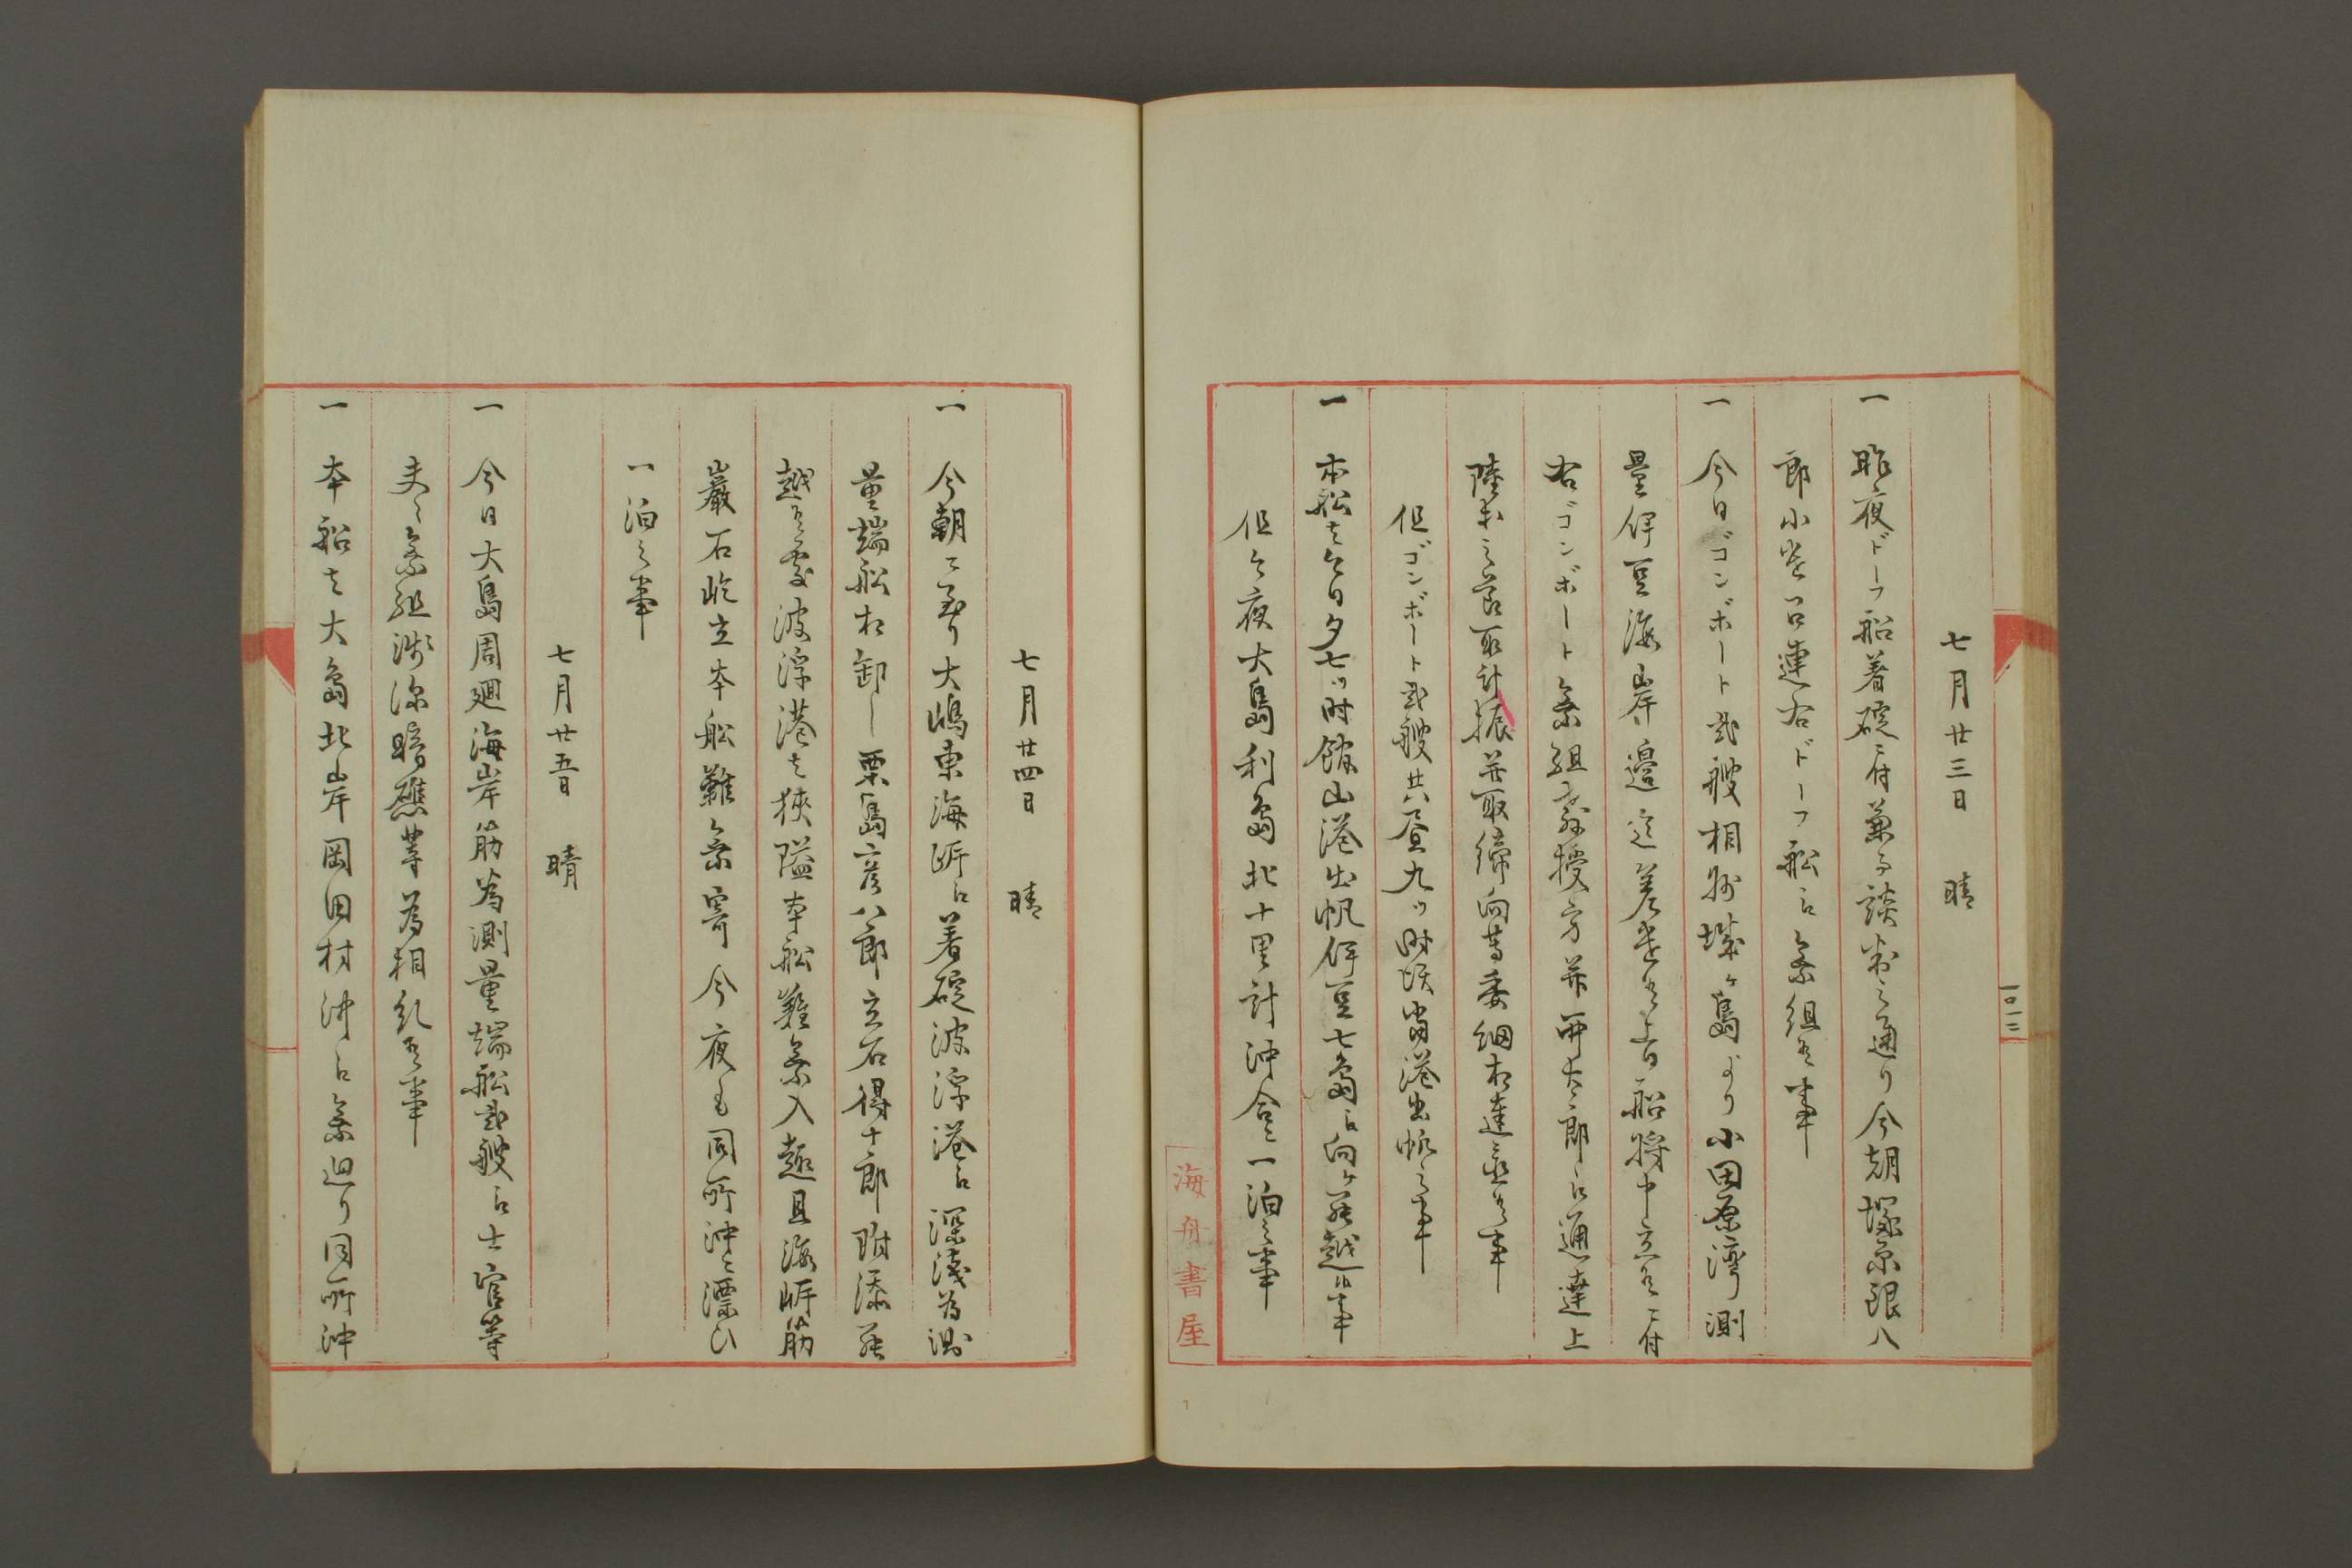 七月廿三日　晴
一　昨夜ドーフ船着碇ニ付兼而談判之通り今朝塚原銀八
郎小笠原召連右ドーフ船江乗組候事
一　今日ゴンボート弐艘相州城ヶ島より小田原湾測
量伊豆海岸邊迄差遣候旨船将申立候ニ付
右ゴンボート乗組教授方并甲太郎江通達上
陸等之節取計振并取締向等委細相達置候事
但ゴンボート弐艘共昼九ツ時頃當港出帆之事
一　本船者今日夕七ツ時館山港出帆伊豆七島江向ヶ罷越候事
但今夜大島利島北十里計沖合ニ一泊之事
海舟書屋
一〇二
七月廿四日　晴
一　今朝ニ至り大嶋東海岸江着碇波浮港江深浅為測
量端船相卸し栗島彦八郎立石得十郎附添罷
越候處波浮港者狭隘本船難乗入趣且海岸筋
巖石屹立本船難乗寄今夜も同所沖ニ漂ひ
一泊之事
七月廿五日　晴
一　今日大島周廻海岸筋為測量端船弐艘江士官等
夫々乗組淺深暗礁等為相糺候事
一　本船者大島北岸岡田村沖江乗廻り同所沖